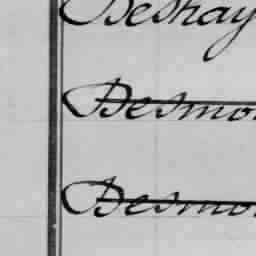 Deshay
Desmo
Desmo